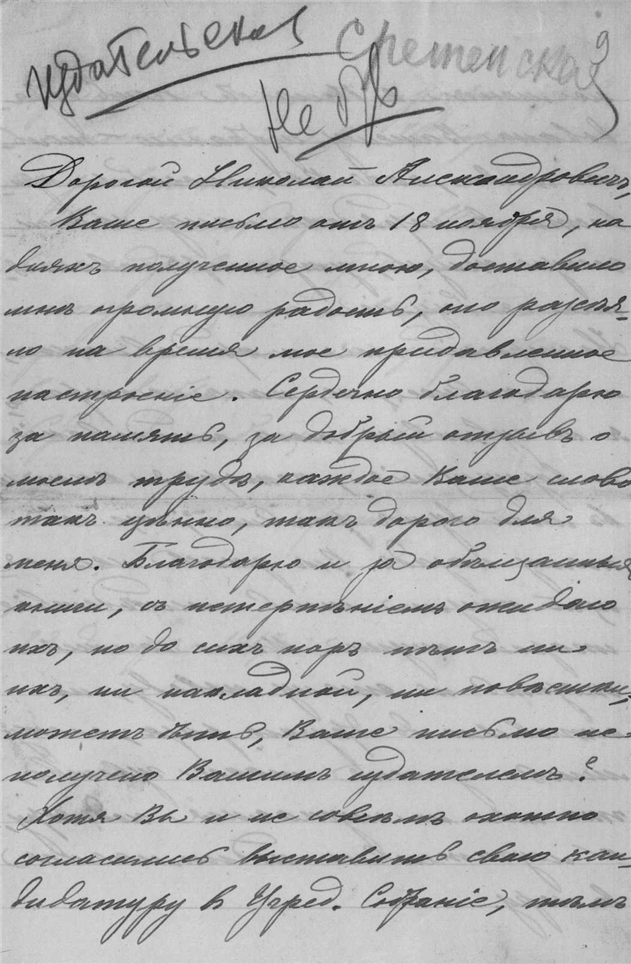 издательская Сретенская 9
Не бр
Дорогой Николай Александровичъ,
Ваше письмо отъ 18 ноября, на
дняхъ полученное мною, доставило
мнѣ огромную радость, оно разсѣя-
ло на время мое придавленное
настроеніе. Сердечно благодарю
за память, за добрый отзывъ о
моемъ трудѣ, каждое Ваше слово
такъ цѣнно, такъ дорого для
меня. Благодарю и за обѣщанныя
книги, съ нетерпѣніемъ ожидаю
ихъ, но до сихъ поръ нѣтъ ни
ихъ, ни накладной, ни повѣстки,
можетъ быть, Ваше письмо не
получено Вашимъ издателемъ?
Хотя Вы и не совсѣмъ охотно
согласились выставить свою кан-
дидатуру въ Учред. Собраніе, тѣмъ